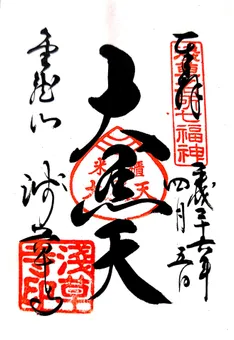 奉拝
浅草名所七福神
平成二十六年
四月五日
大黒天
金龍山
浅草寺
淺草寺印